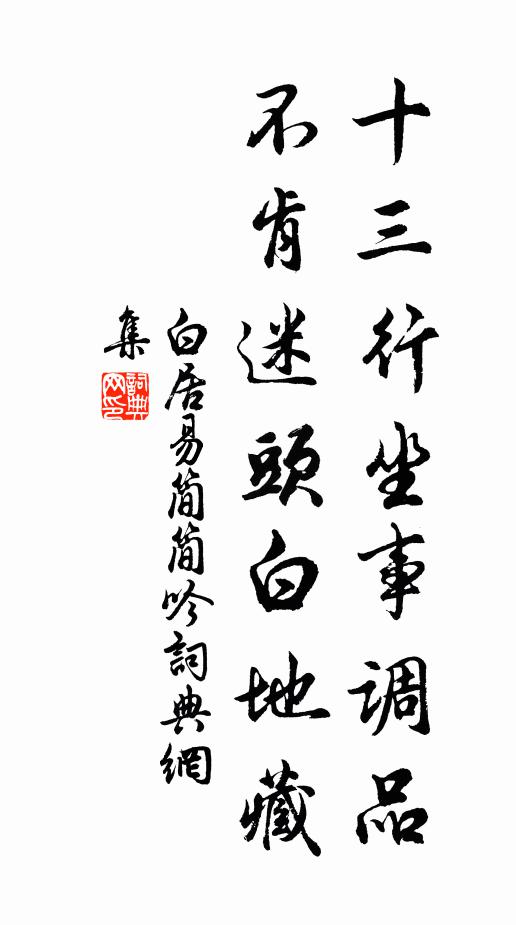 十三行坐事調品
不肯迷頭白地藏
白居易簡簡吟詞典網
集
詞典网印